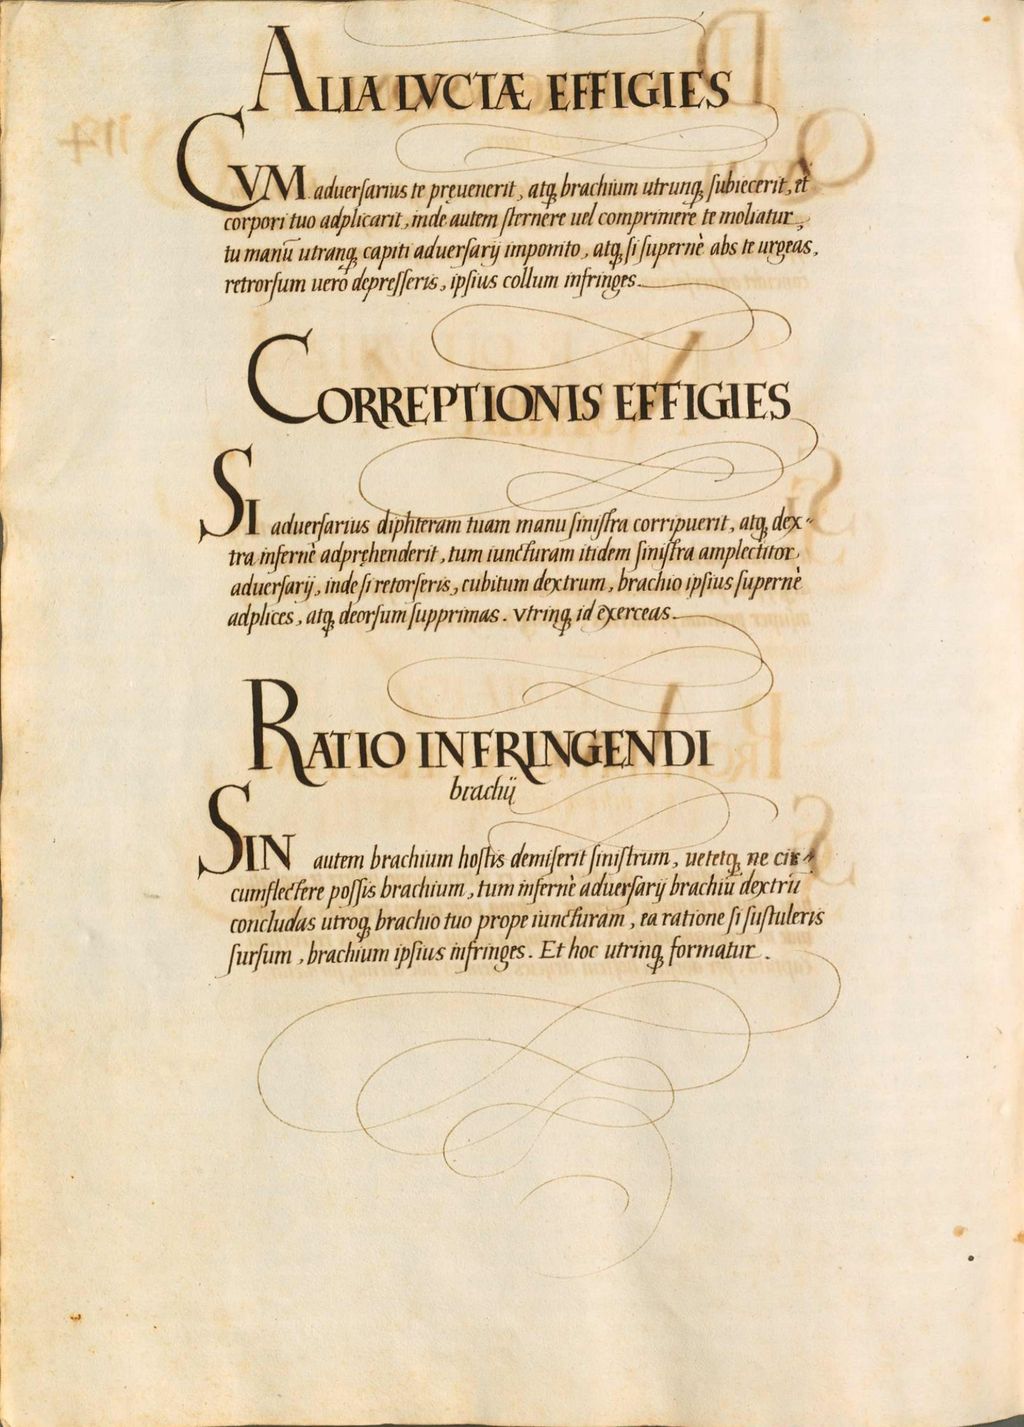 ALIA LVCTÆ EFFIGIES
CVM aduersarius te pręuenerit, atq; brachium utrunq; subiecerit, et
corpori tuo adplicarit, inde autem sternere uel comprimere te moliatur,
tu manū utranq; capiti aduersarij imponito, atq; si supernè abs te urgeas,
retrorsum uero depresseris, ipsius collum infringes.
CORREPTIONIS EFFIGIES
SI aduersarius diphteram tuam manu sinistra corripuerit, atq; dex-
tra infernè adpręhenderit, tum iuncturam itidem sinistra amplectitor
aduersarij, inde si retorseris, cubitum dextrum, brachio ipsius supernè
adplices, atq; deorsum supprimas. Vtrinq; id exerceas.
RATIO INFRINGENDI
brachij
SIN autem brachium hostis demiserit sinistrum, uetetq; ne cir-
cumflectere possis brachium, tum infernè aduersarij brachiū dextrū
concludas utroq; brachio tuo prope iuncturam, ea ratione si sustuleris
sursum, brachium ipsius infringes. Et hoc utrinq; formatur.